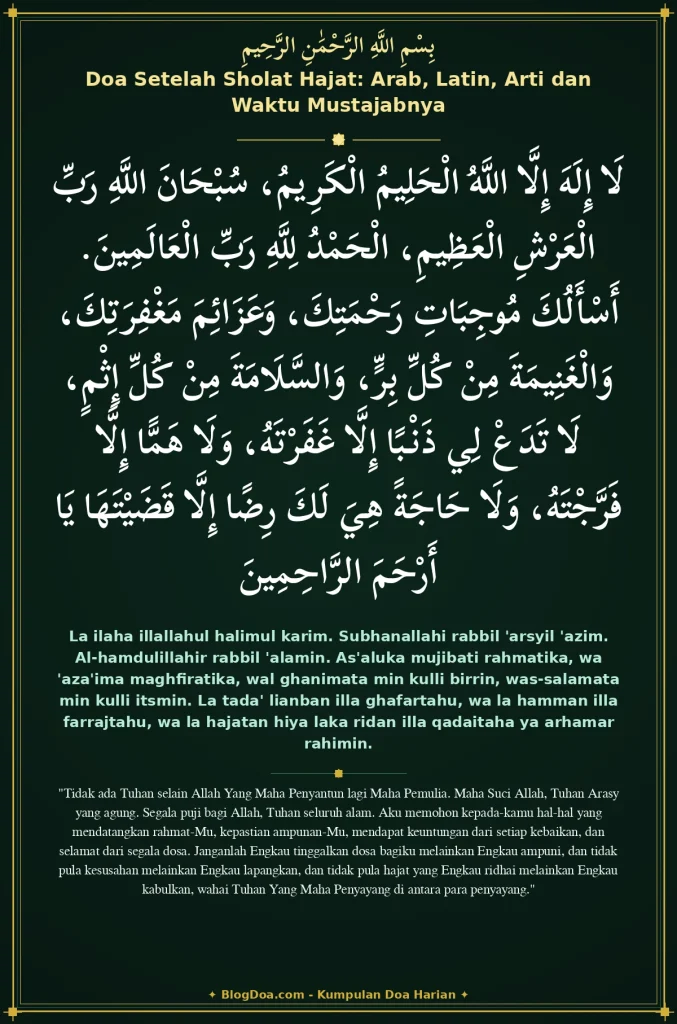 بِسْمِ اللَّهِ الرَّحْمَٰنِ الرَّحِيمِ
Doa Setelah Sholat Hajat: Arab, Latin, Arti dan
Waktu Mustajabnya
لَا إِلَهَ إِلَّا اللَّهُ الْحَلِيمُ الْكَرِيمُ، سُبْحَانَ اللَّهِ رَبِّ
الْعَرْشِ الْعَظِيمِ، الْحَمْدُ لِلَّهِ رَبِّ الْعَالَمِينَ.
أَسْأَلُكَ مُوجِبَاتِ رَحْمَتِكَ، وَعَزَائِمَ مَغْفِرَتِكَ،
وَالْغَنِيمَةَ مِنْ كُلِّ بِرٍّ، وَالسَّلَامَةَ مِنْ كُلِّ إِثْمٍ،
لَا تَدَعْ لِي ذَنْبًا إِلَّا غَفَرْتَهُ، وَلَا هَمًّا إِلَّا
فَرَّجْتَهُ، وَلَا حَاجَةً هِيَ لَكَ رِضًا إِلَّا قَضَيْتَهَا يَا
أَرْحَمَ الرَّاحِمِينَ
La ilaha illallahul halimul karim. Subhanallahi rabbil 'arsyil 'azim.
Al-hamdulillahir rabbil 'alamin. As'aluka mujibati rahmatika, wa
'aza'ima maghfiratika, wal ghanimata min kulli birrin, was-salamata
min kulli itsmin. La tada' lianban illa ghafartahu, wa la hamman illa
farrajtahu, wa la hajatan hiya laka ridan illa qadaitaha ya arhamar
rahimin.
"Tidak ada Tuhan selain Allah Yang Maha Penyantun lagi Maha Pemulia. Maha Suci Allah, Tuhan Arasy
yang agung. Segala puji bagi Allah, Tuhan seluruh alam. Aku memohon kepada-kamu hal-hal yang
mendatangkan rahmat-Mu, kepastian ampunan-Mu, mendapat keuntungan dari setiap kebaikan, dan
selamat dari segala dosa. Janganlah Engkau tinggalkan dosa bagiku melainkan Engkau ampuni, dan tidak
pula kesusahan melainkan Engkau lapangkan, dan tidak pula hajat yang Engkau ridhai melainkan Engkau
kabulkan, wahai Tuhan Yang Maha Penyayang di antara para penyayang."
✦ BlogDoa.com - Kumpulan Doa Harian ✦